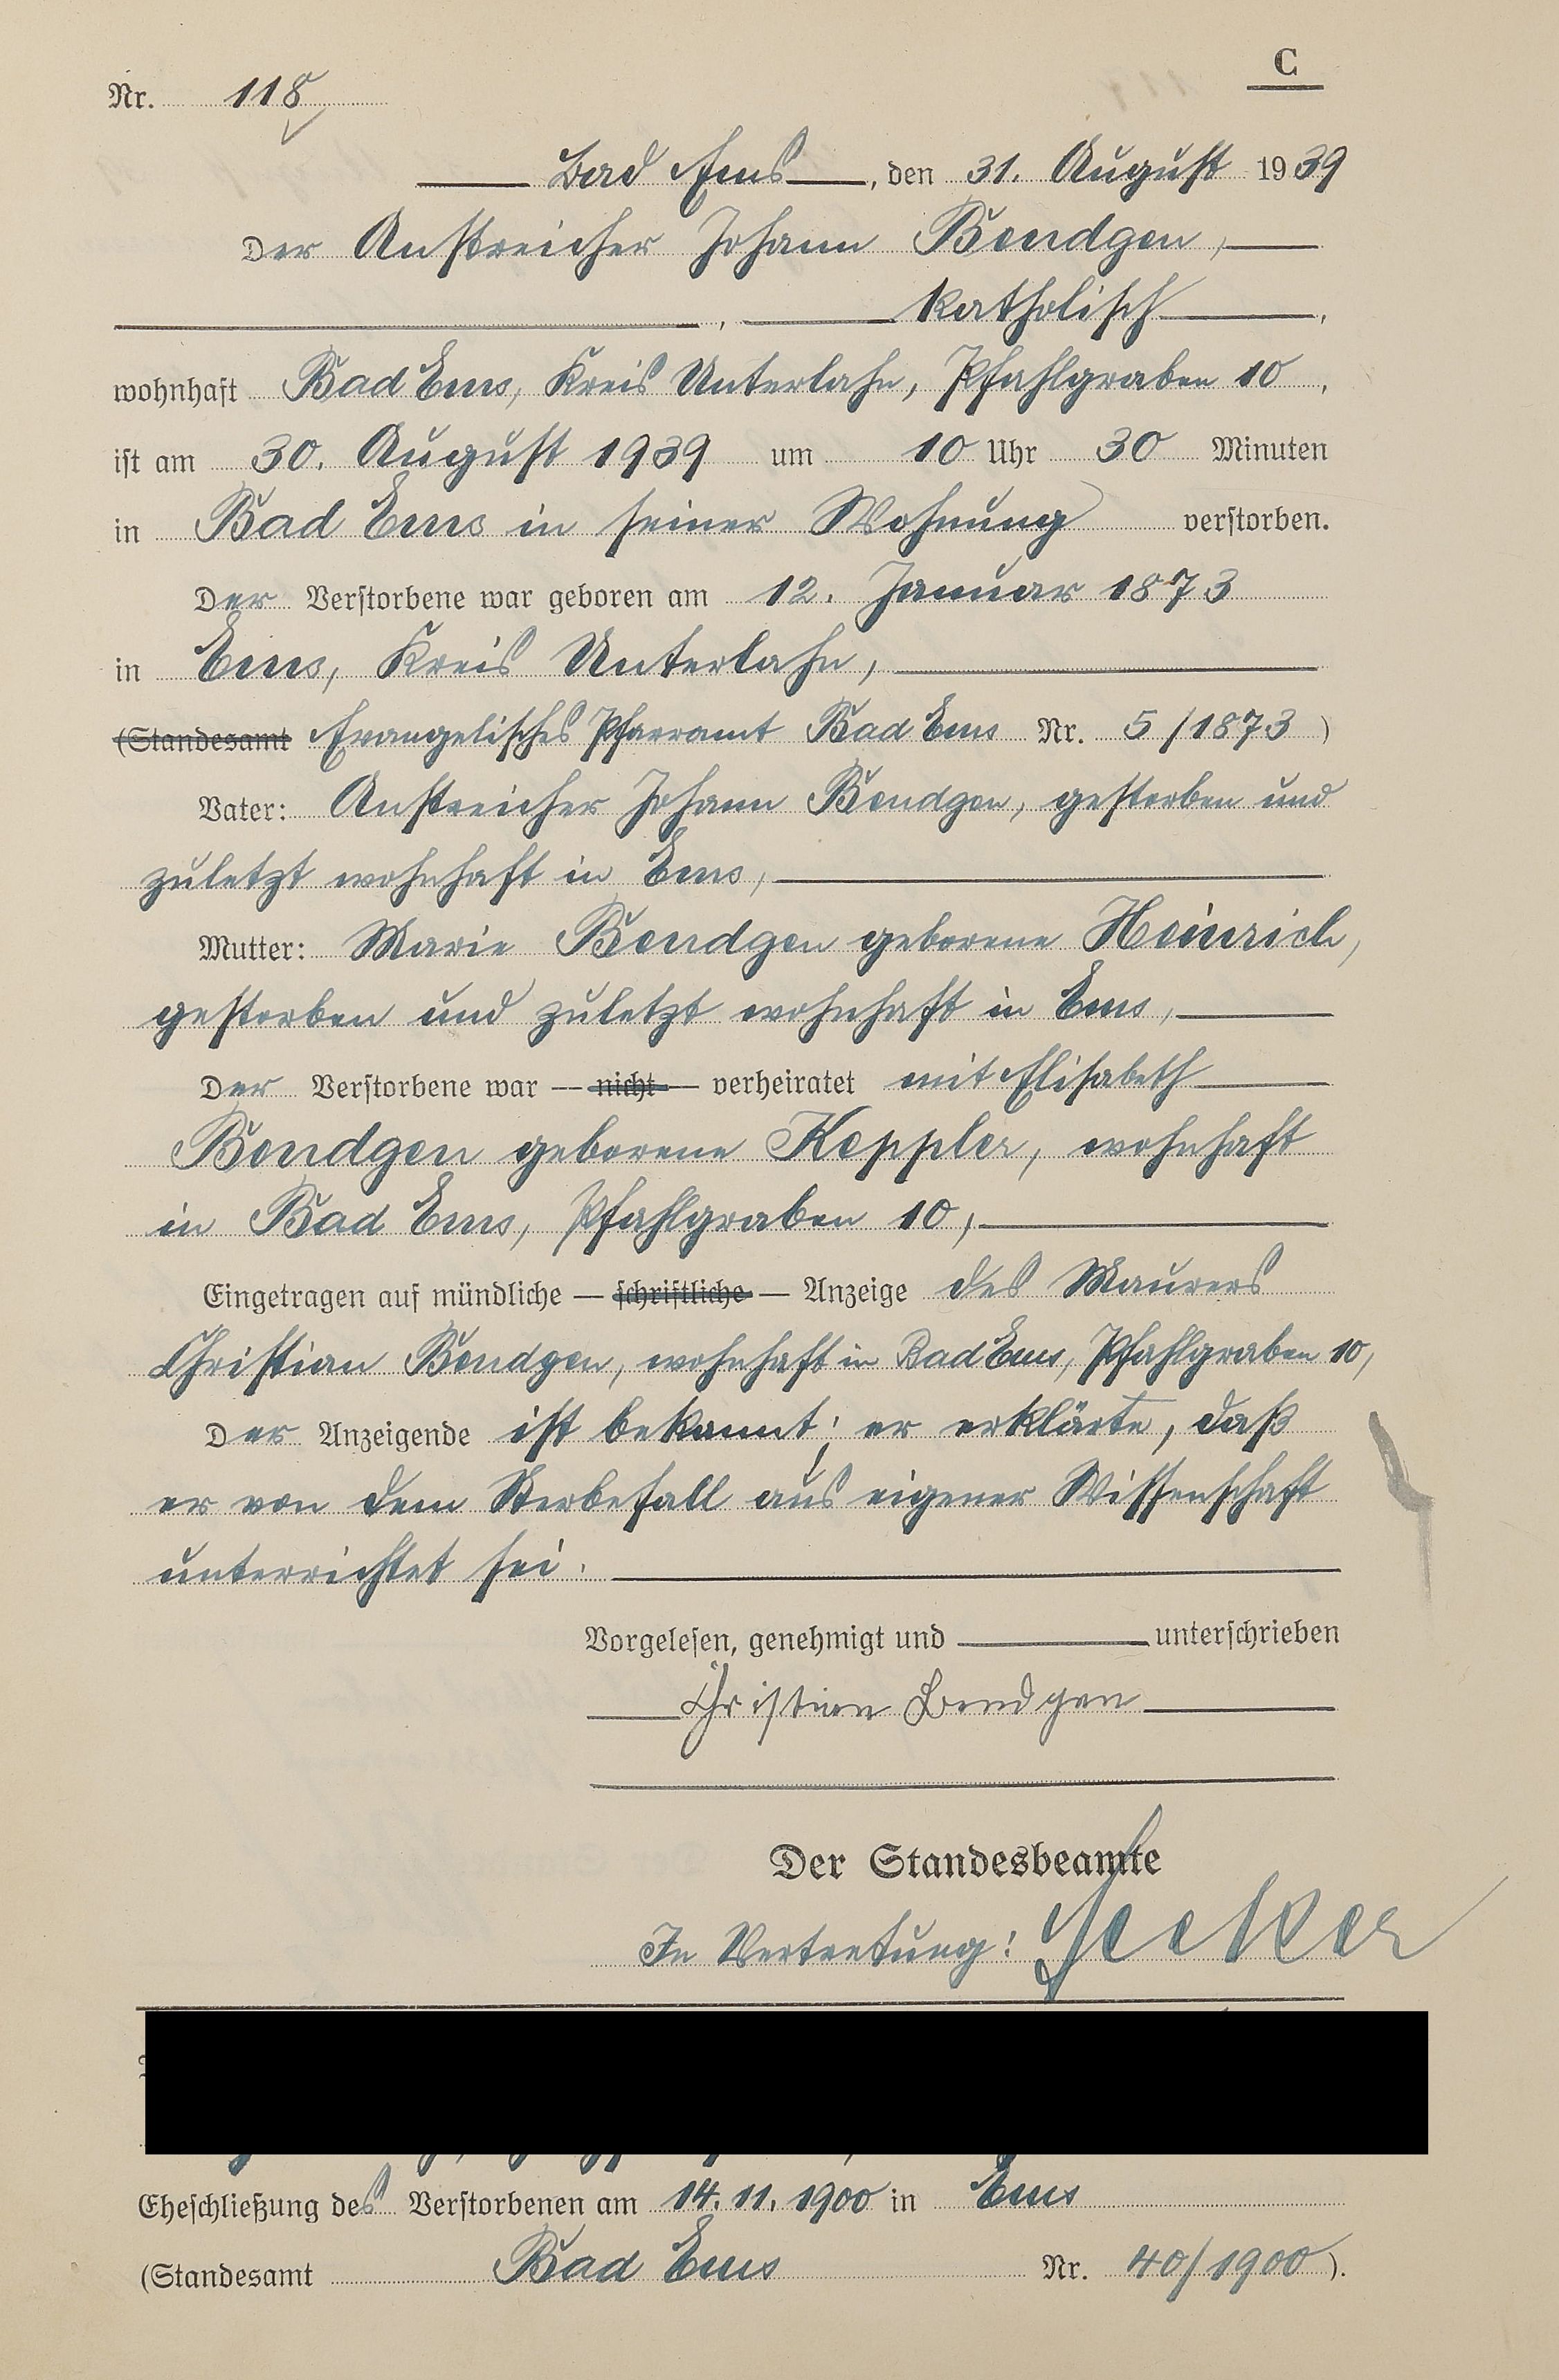 C
Nr. 118
Bad Ems, den 31. August 1939
Der Anstreicher Johann Bendgen,
, katholisch,
wohnhaft Bad Ems, Kreis Unterlahn, Pfahlgraben 10,
ist am 30. August 1939 um 10 Uhr 30 Minuten
in Bad Ems in seiner Wohnung verstorben.
Der Verstorbene war geboren am 12. Januar 1873
in Ems, Kreis Unterlahn,
(Standesamt Evangelisches Pfarramt Bad Ems Nr. 5/1873)
Vater: Anstreicher Johann Bendgen, gestorben und
zuletzt wohnhaft in Ems,
Mutter: Marie Bendgen geborene Heinrich,
gestorben und zuletzt wohnhaft in Ems,
Der Verstorbene war — nicht — verheiratet mit Elisabeth
Bendgen geborene Keppler, wohnhaft
in Bad Ems, Pfahlgraben 10,
Eingetragen auf mündliche — schriftliche — Anzeige des Maurers
Christian Bendgen, wohnhaft in Bad Ems, Pfahlgraben 10,
Der Anzeigende ist bekannt; er erklärte, daß
er von dem Sterbefall aus eigener Wissenschaft
unterrichtet sei.
Vorgelesen, genehmigt und unterschrieben
Christian Bendgen
Der Standesbeamte
In Vertretung:
Eheschließung des Verstorbenen am 14.11.1900 in Ems
(Standesamt Bad Ems Nr. 40/1900).